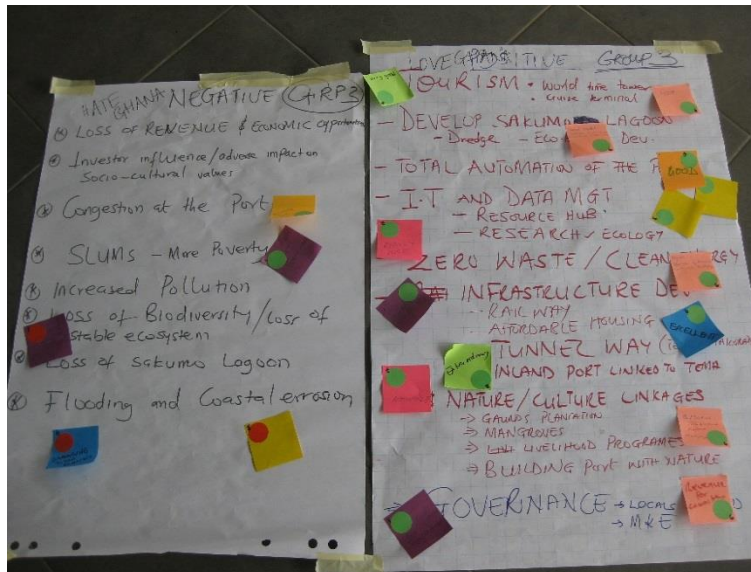 HATE GHANA NEGATIVE GRP3
LOSS OF REVENUE & ECONOMIC
Investor influence/adverse impact on
Socio-cultural values
Congestion at the Port
SLUMS - More Poverty
Increased Pollution
Loss of Biodiversity/Loss of
stable ecosystem
Loss of Sakumo Lagoon
Flooding and Coastal erosion
LOVE GHANA POSITIVE GROUP 3
TOURISM • World time tower
• Cruise terminal
- DEVELOP SAKUMO LAGOON
- Dredge - Eco Dev.
- TOTAL AUTOMATION OF THE
GOOD
- I.T AND DATA MGT
- RESOURCE HUB
- RESEARCH/ECOLOGY
ZERO WASTE/CLEAN
- INFRASTRUCTURE DEV
- RAILWAY
- AFFORDABLE HOUSING
EXCELLENT
TUNNEL WAY
INLAND PORT LINKED TO TEMA
NATURE/CULTURE LINKAGES
→ MANGROVES
→ LIVELIHOOD PROGRAMES
→ BUILDING Port WITH NATURE
Revenue
for
→ GOVERNANCE → LOCALS
→ M&E